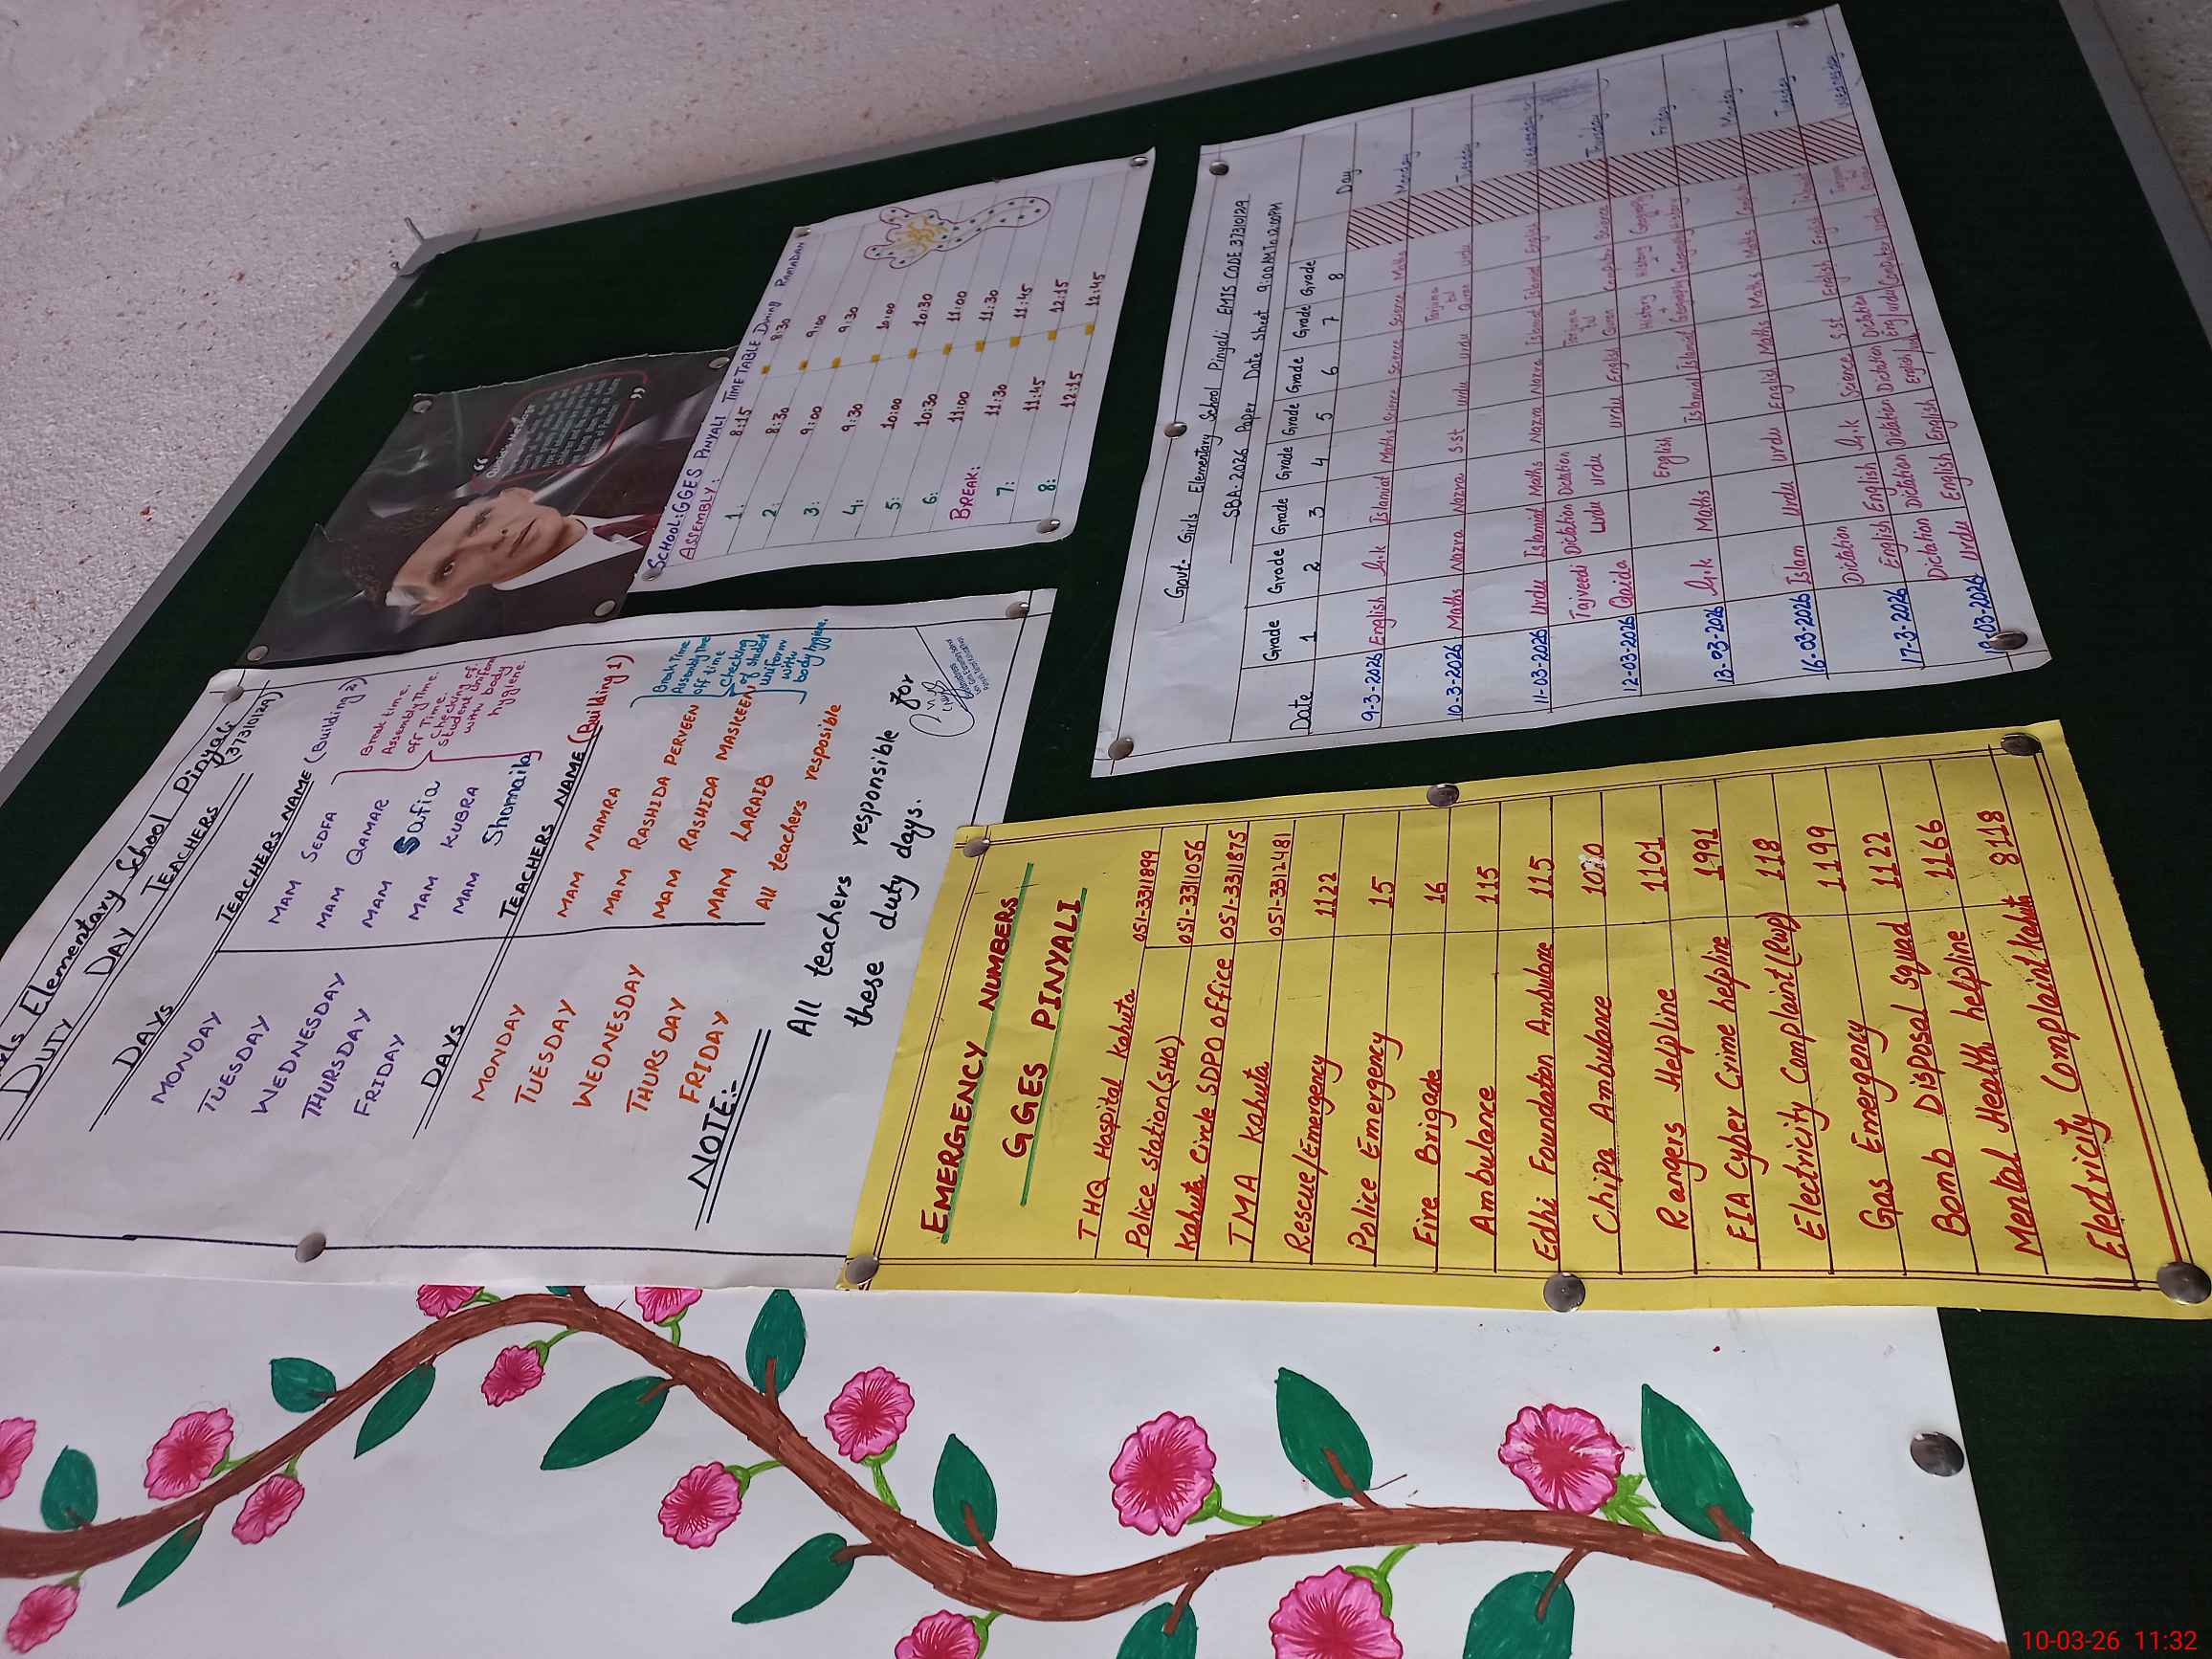 Girls Elementary School Pinyali
DUTY DAY TEACHERS (37310129)
DAYS TEACHERS NAME (Building 2)
MONDAY MAM SEDFA
TUESDAY MAM QAMAR
WEDNESDAY MAM Safia
THURSDAY MAM KUBRA
FRIDAY MAM Shomaila
Break time.
Assembly Time.
off Time.
checking of
student uniform
with body
hygiene.
DAYS TEACHERS NAME (Building 1)
MONDAY MAM NAMRA
TUESDAY MAM RASHIDA PERVEEN
WEDNESDAY MAM RASHIDA MASKEEN
THURSDAY MAM LARAIB
FRIDAY All teachers resposible
Break Time
Assembly Time
off time
Checking
of student
uniform
with
body hygiene.
NOTE:-
All teachers responsible for
these duty days.
SCHOOL: GGES PINYALI TIME TABLE DURING RAMADAN
ASSEMBLY: 8:15 8:30
1: 8:30 9:00
2: 9:00 9:30
3: 9:30 10:00
4: 10:00 10:30
5: 10:30 11:00
6: 11:00 11:30
BREAK: 11:30 11:45
7: 11:45 12:15
8: 12:15 12:45
EMERGENCY NUMBERS
GGES PINYALI
THQ Hospital Kahuta 051-3311899
Police Station (SHO) 051-3311056
Kahuta Circle SDPO office 051-331875
TMA Kahuta 051-3312481
Rescue/Emergency 1122
Police Emergency 15
Fire Brigade 16
Ambulance 115
Edhi Foundation Ambulance 115
Chipa Ambulance 1020
Rangers Helpline 1101
FIA Cyber Crime helpline 1991
Electricity Complaint (Rwp) 118
Gas Emergency 1199
Bomb Disposal Squad 1122
Mental Health helpline 1166
Electricity Complaint Kahuta 8118
Govt. Girls Elementary School Pinyali EMIS CODE 37310129
SBA-2026 Paper Date Sheet 9:00 AM To 12:00PM
Date Grade 1 Grade 2 Grade 3 Grade 4 Grade 5 Grade 6 Grade 7 Grade 8 Day
9-3-2026 English G.k Islamiat Maths Science Science Science Maths Monday
10-3-2026 Maths Nazra Nazra S.st Urdu Urdu Tarjuma tul Quran Urdu Tuesday
11-03-2026 Urdu Islamiat Maths Nazra Nazra Islamiat Islamiat English Wednesday
12-03-2026 Tajveedi Qaida Dictation Urdu Dictation Urdu Urdu English Tarjuma tul Quran Computer Science Thursday
13-03-2026 G.k Maths English Islamiat Islamiat History + Geography History + Geography Geography History Friday
16-03-2026 Islam Urdu Urdu English Maths Maths Maths Monday
17-3-2026 Dictation English Dictation English G.k Science S.st English English Tuesday
03-2026 Dictation Urdu Dictation English Dictation English Dictation English Dictation Computer Urdu Wednesday
10-03-26 11:32